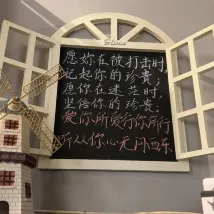 愿妳在被打击时,
记起你的珍贵,
愿你在迷茫时,
坚信你的珍贵,
爱你所爱行你所行
听从你心无问西东